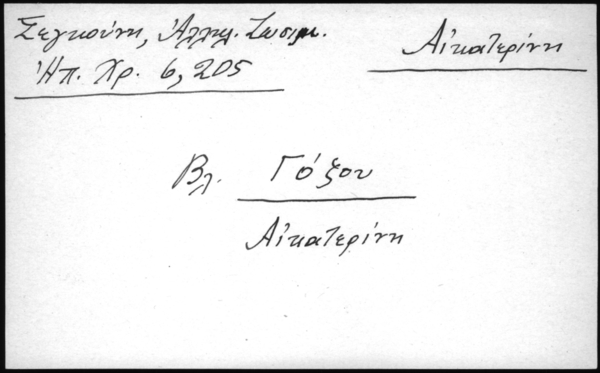 Σεγκούνη, Ἀλληλ. Ζωσιμ.
Ἠπ. Χρ. 6, 205
Αἰκατερίνη
Βλ. Γόξου
Αἰκατερίνη